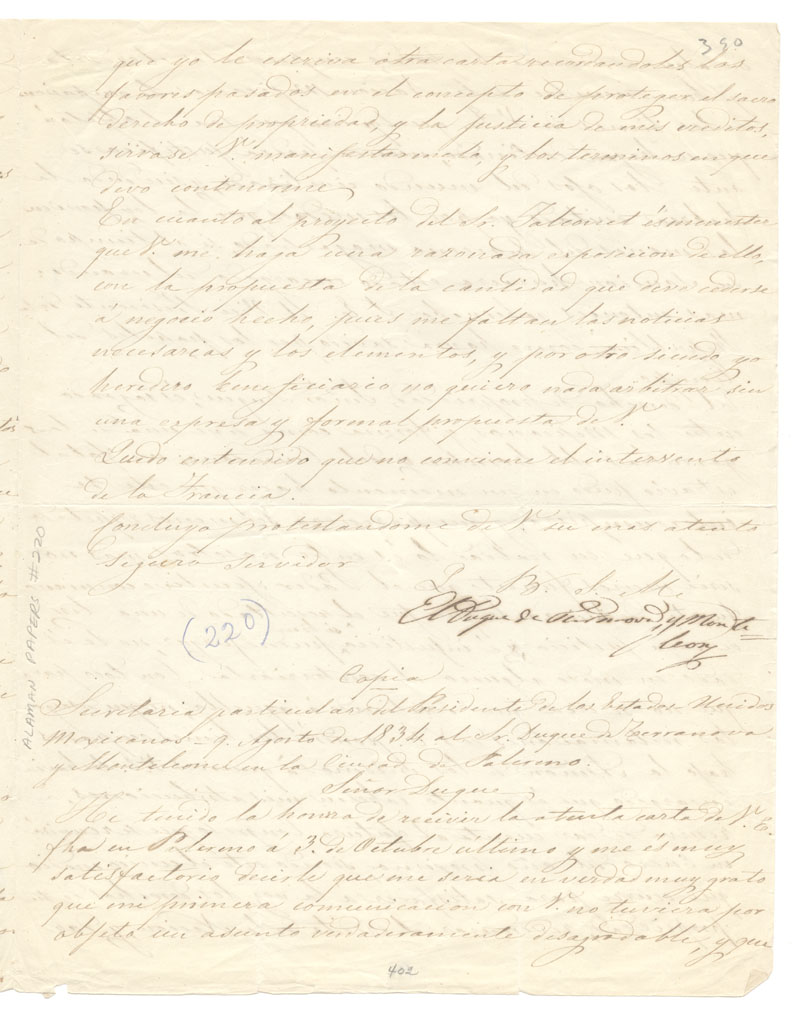 390
que yo le escriva otra carta recordandoles los
favores pasados en el concepto de proteger el sacro
derecho de propriedad, y la justicia de mis creditos,
sirvase V. manifestarmela, y los terminos en que
devo contenerme
En cuanto al proyecto del Sr. és menester
que V. me haga una razonada exposicion de ello,
con la propuesta de la cantidad que deva cederse
a negocio hecho, pues me faltan las noticias
necesarias y los elementos, y por otro siendo yo
heredero beneficiario no quiero nada arbitrar sin
una expresa y formal propuesta de V.
Quedo entendido que no conviene el intervento
de la Francia.
Concluyo protestandome de V. su mas atento
Seguro Servidor
Q. B. S. M.
El Duque de Terranova, y Monte=
leon
(220)
ALAMAN PAPERS #220
Copia
Secretaria particular del Presidente de los Estados Unidos
Mexicanos = 9. Agosto de 1834. al Sr. Duque de Terranova
y Monteleone en la Ciudad de Palermo.
Señor Duque
He tenido la honra de recivir la atenta carta de V. E.
fha en Palermo á 3. de Octubre último y me és muy
satisfactorio decirle que me seria en verdad muy grato
que mi primera comunicacion con V. no tuviera por
objeto un asunto verdaderamente desagradable, y que
402